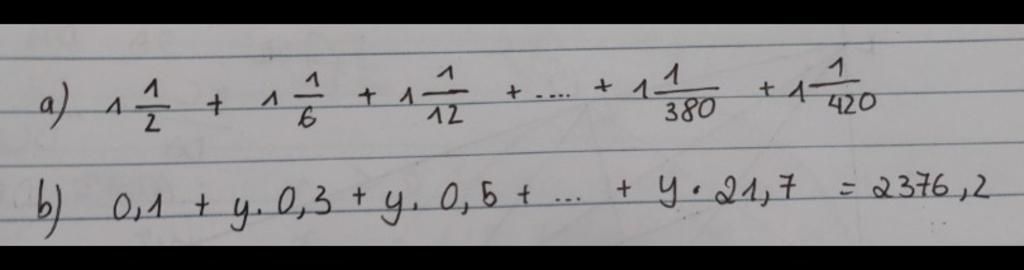 a) 1 1/2 + 1 1/6 + 1 1/12 + .... + 1 1/380 + 1 1/420
b) 0,1 + y. 0,3 + y. 0,5 + ... + y . 21,7 = 2376,2